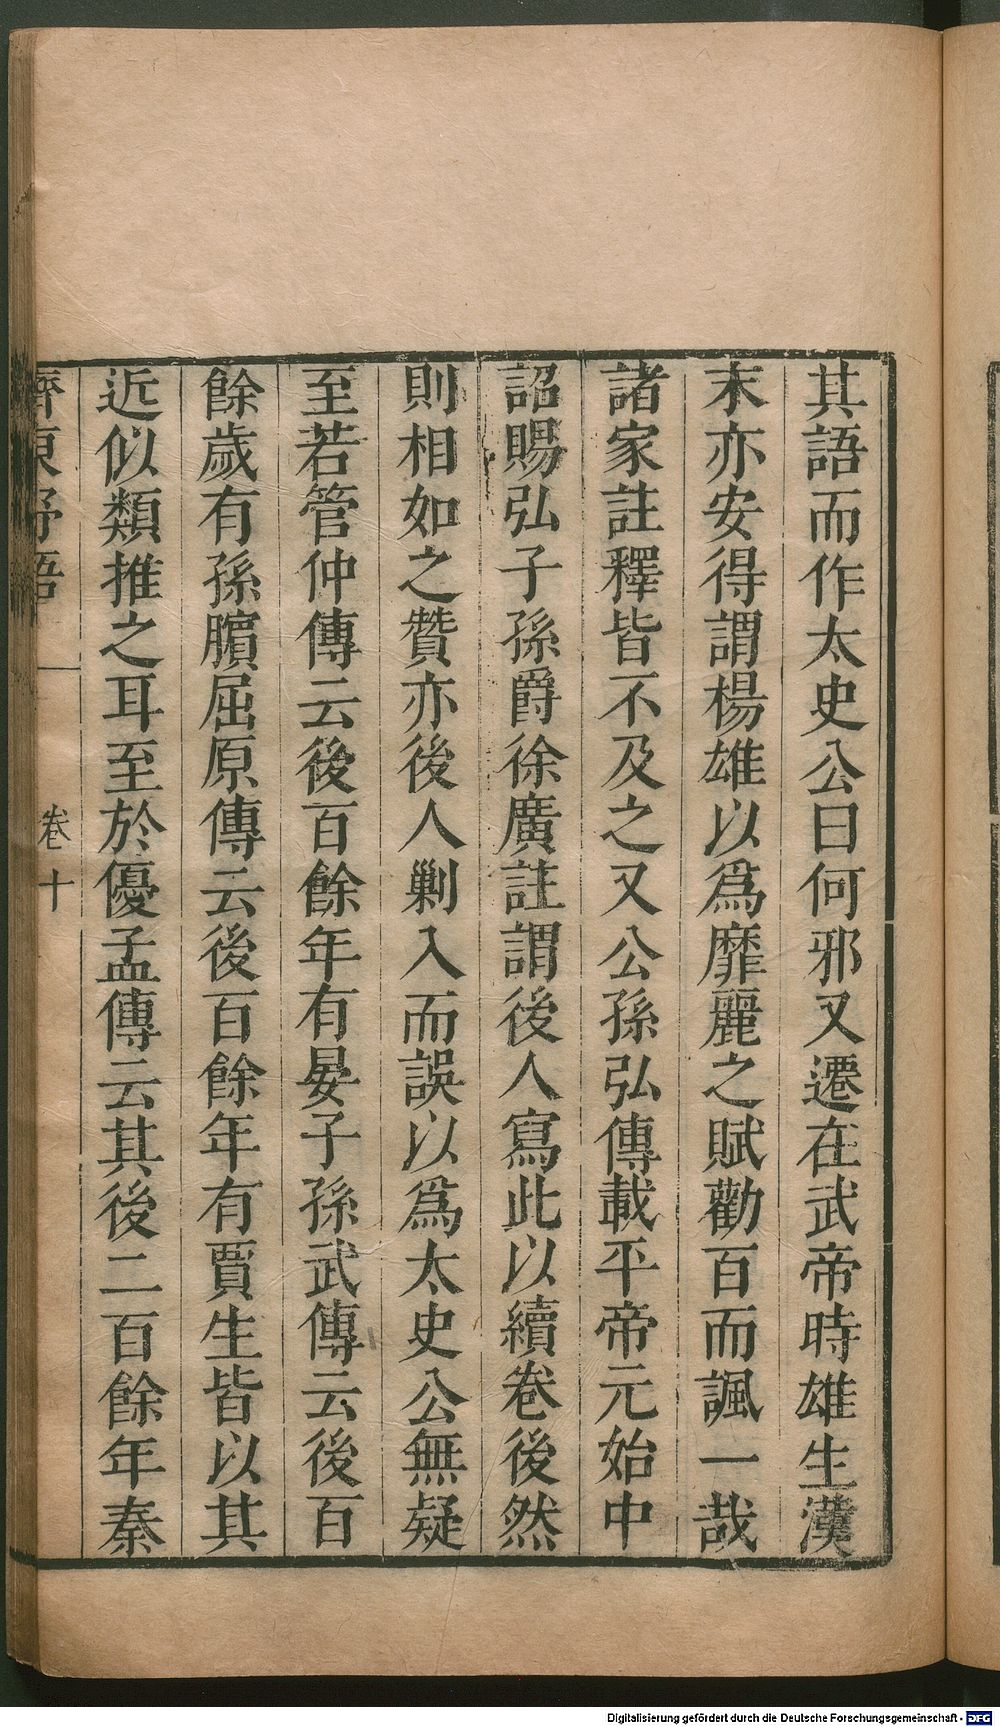 其語而作太史公曰何邪又遷在武帝時雄生漢
末亦安得謂楊雄以爲靡麗之賦勸百而諷一哉
諸家註釋皆不及之又公孫弘傳載平帝元始中
詔賜弘子孫爵徐廣註謂後人寫此以續卷後然
則相如之贊亦後人剿入而誤以爲太史公無疑
至若管仲傳云後百餘年有晏子孫武傳云後百
餘歲有孫臏屈原傳云後百餘年有賈生皆以其
近似類推之耳至於優孟傳云其後二百餘年秦
齊東野語 卷十
Digitalisierung gefördert durch die Deutsche Forschungsgemeinschaft - DFG